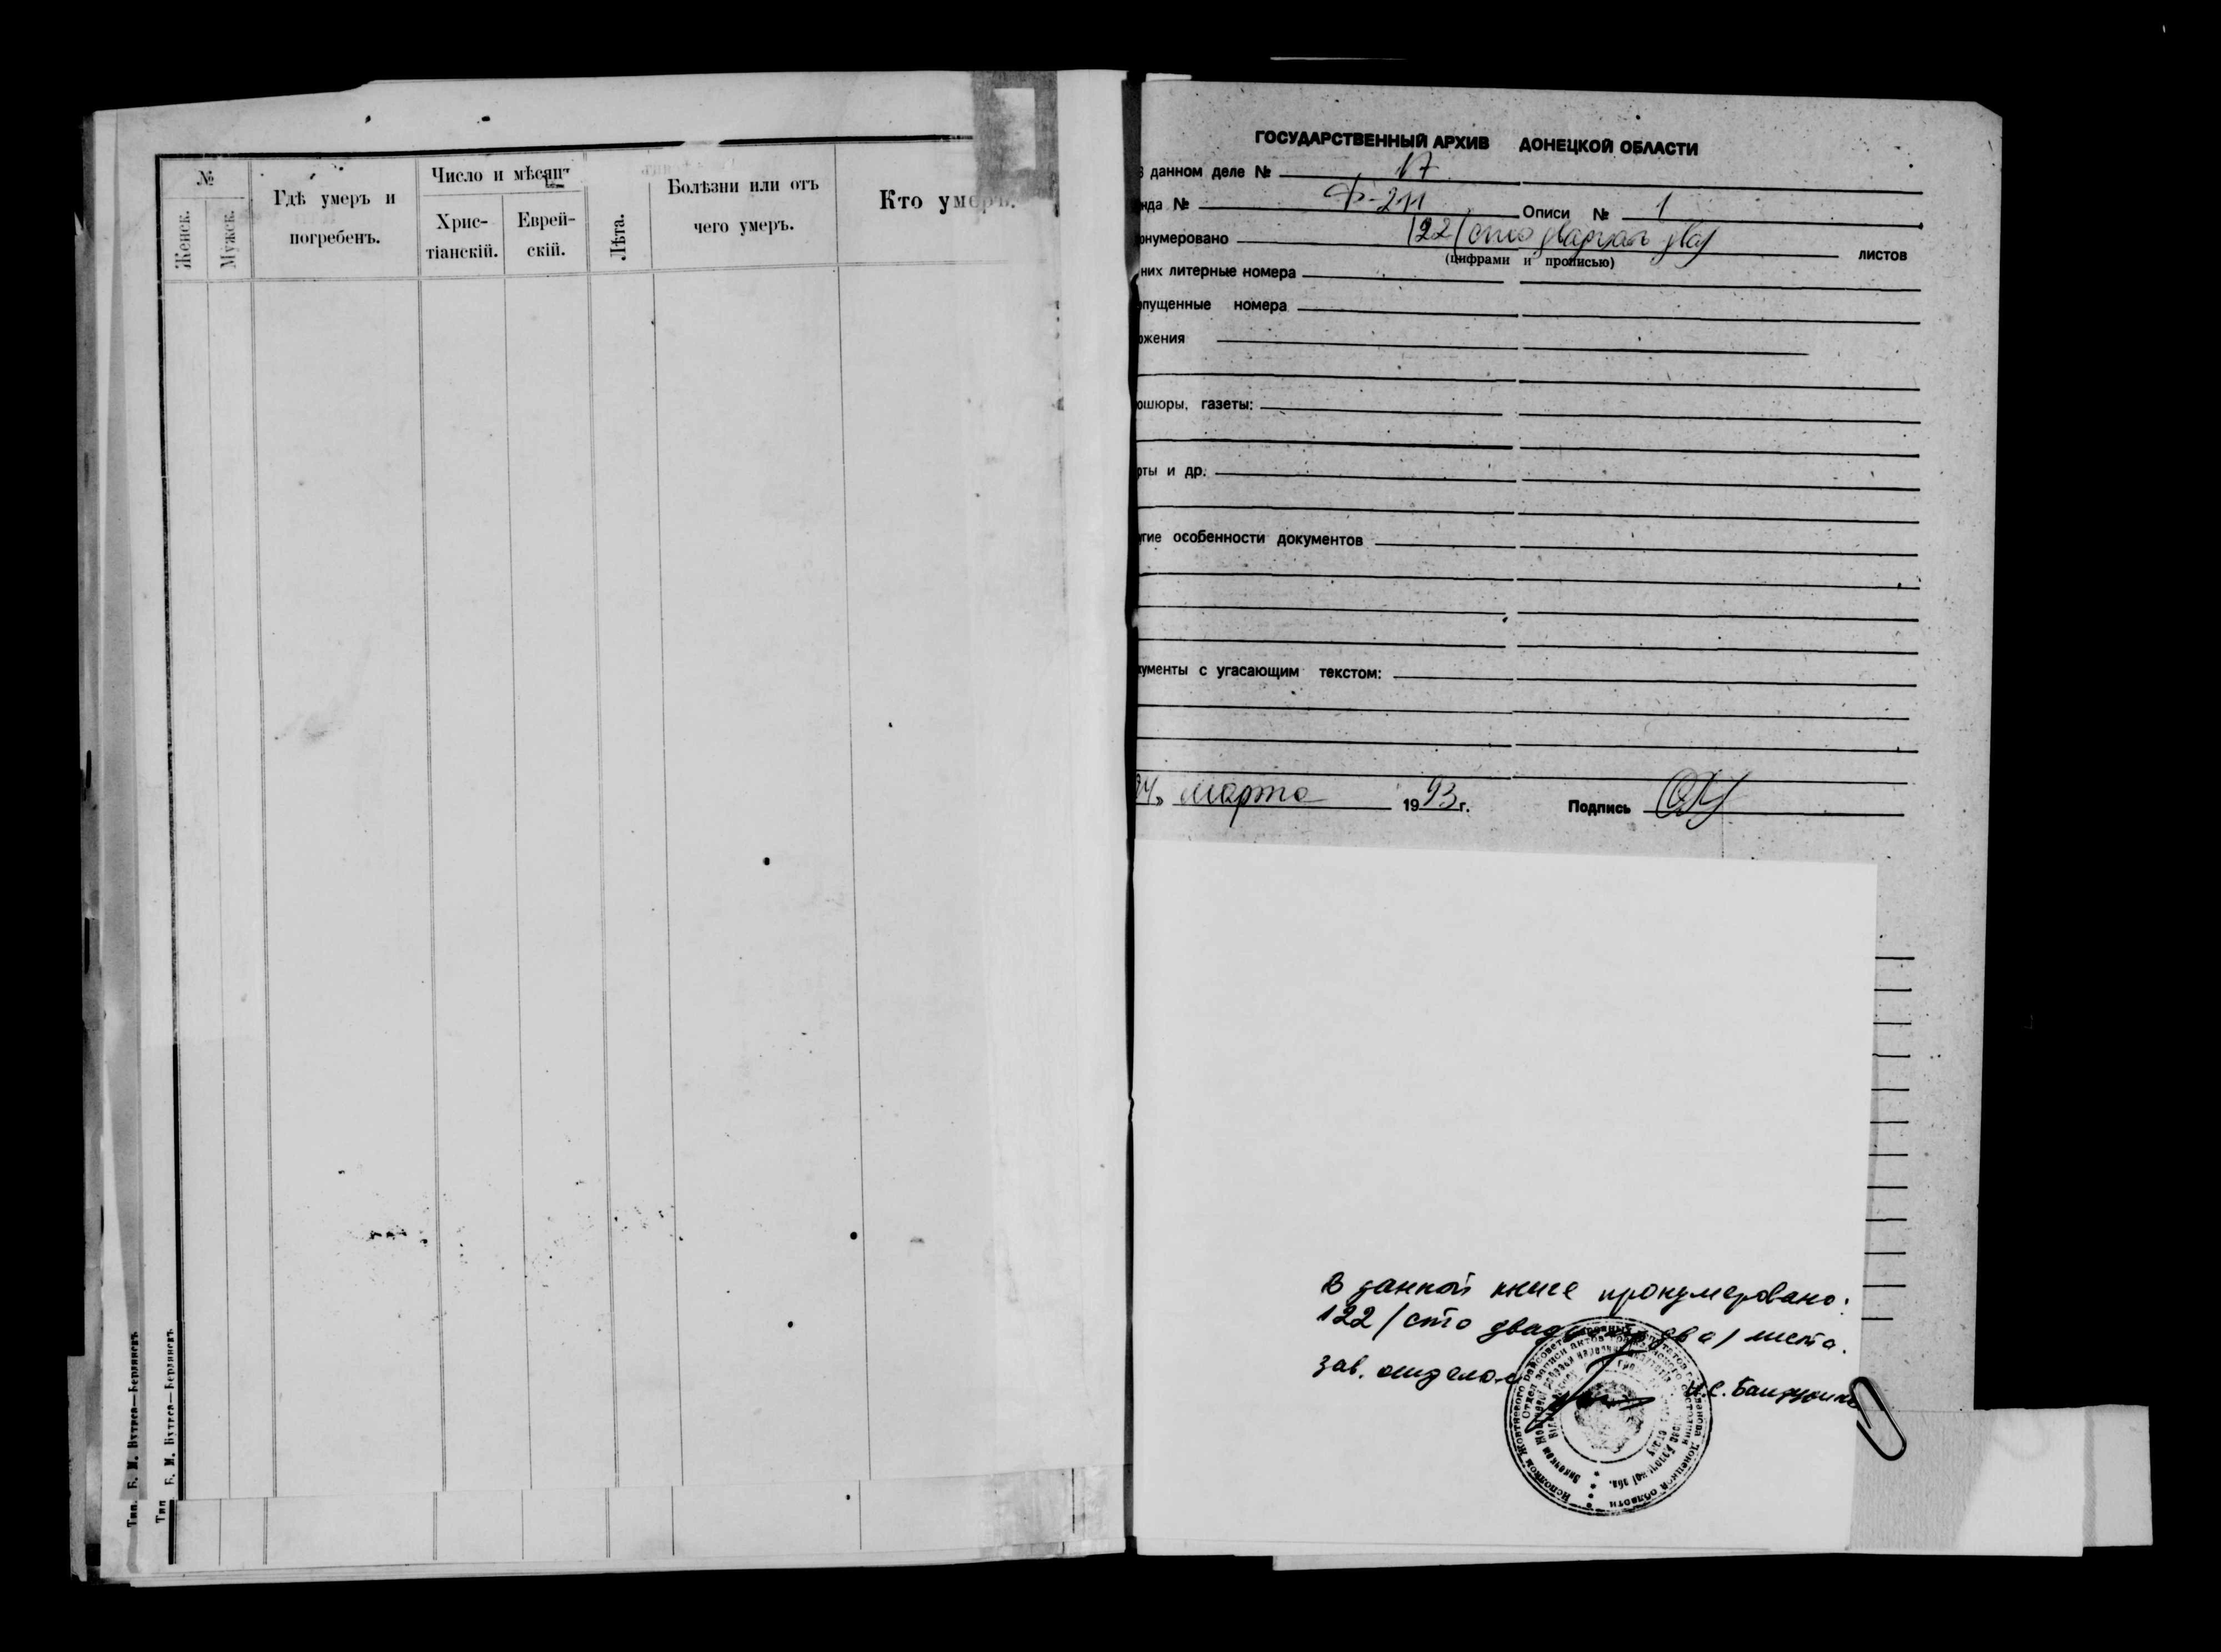 №
Женск.
Мужск.
Гдѣ умеръ и
погребенъ.
Число и мѣсяцъ
Хрис-
тіанскій.
Еврей-
скій.
Лѣта.
Болѣзни или отъ
чего умеръ.
Кто умеръ.
Тип. Б. М. Бутрса—Бердянскъ
ГОСУДАРСТВЕННЫЙ АРХИВ ДОНЕЦКОЙ ОБЛАСТИ
данном деле № 17
нда № Ф-211 Описи № 1
онумеровано 122 /сто двадцать два/ листов
(цифрами и прописью)
них литерные номера
опущенные номера
ожения
ошюры, газеты:
рты и др.
угие особенности документов
кументы с угасающим текстом:
24 марта 1993 г. Подпись
В данной книге пронумеровано:
122 / сто двадцать два / листа.
Зав. отделом